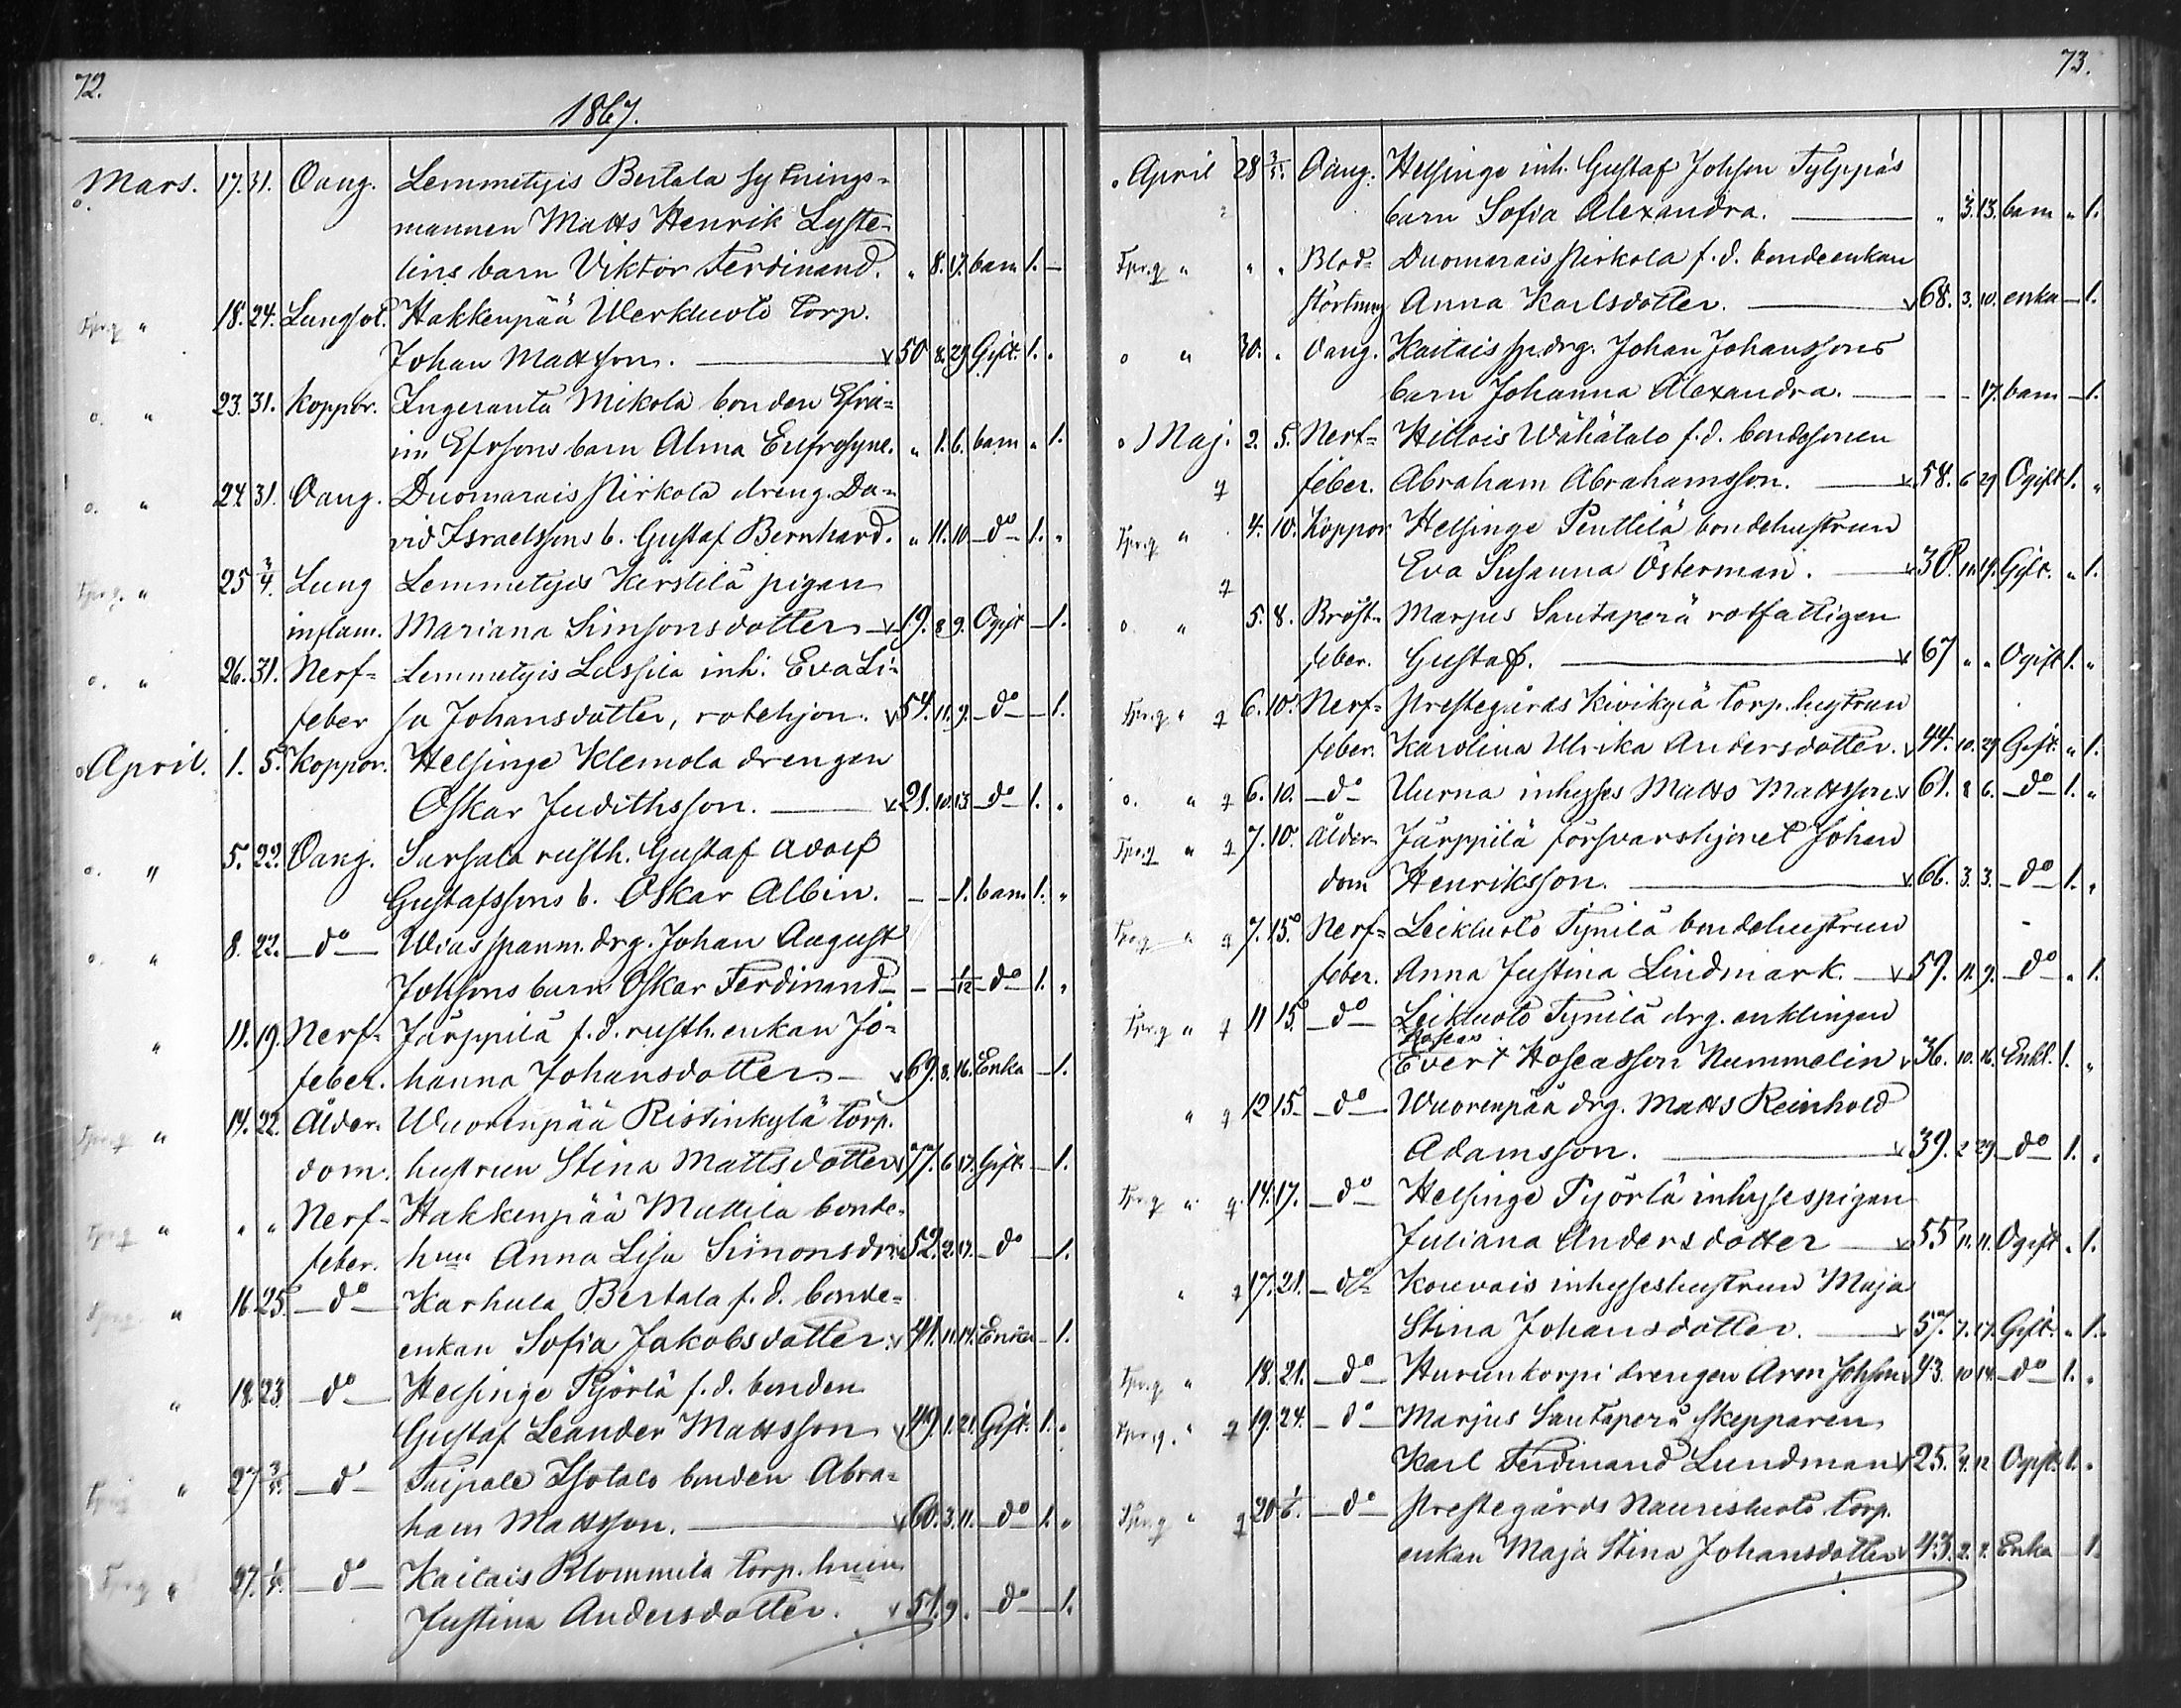 72.
1867.
Mars. 17. 31. Oang. Lemmetyis Bertala sytnings-
mannen Matts Henrik Lyste-
lins barn Viktor Ferdinand. „ 8. 17. barn 1. —
„ 18. 24. Lungsot. Hakkenpää Werkluoto torp.
Johan Mattsson. — 50 8. 29 Gift. 1. „
o. „ 23. 31. Koppor. Ingeranta Mikola bonden Efra-
im Efrssons barn Alma Eufrosyne. „ 1. 6. barn „ 1.
o. „ 24. 31. Oang. Duomarais Pirkola dreng. Da-
vid Israelssons b. Gustaf Bernhard. „ 11. 10. — do — 1. „
„ 25 3/4. Lung Lemmetyis Kirstilä pigan
inflam. Mariana Simsonsdotter — 19. 8 9. Ogift — 1.
o. „ 26. 31. Nerf- Lemmetyis Lassila inh. Eva Li-
feber sa Johansdotter, rotehjon. 54. 11. 9. — do — 1.
o April. 1. 5. Koppor. Helsinge Klemola drengen
Oskar Judithsson. — 21. 10. 13. — do — 1. „
o. „ 5. 22. Oang. Sarsala rusth. Gustaf Adolf
Gustafssons b. Oskar Albin. — — 1. barn 1. „
o. „ 8. 22. — do — Wias spanm. drg. Johan August
Johssons barn Oskar Ferdinand — — 1/12 — do — 1. „
„ 11. 19. Nerf- Järppilä f. d. rusth. enkan Jo-
feber. hanna Johansdotter — 69. 8. 16. Enka — 1.
„ 14. 22. Ålder- Wuorenpää Ristinkylä torp.
dom. hustrun Stina Mattsdotter 77. 6 17. Gift — 1.
„ „ „ Nerf- Hakkenpää Mattila bonde-
feber. hun Anna Lisa Simonsdr 52. 2. 17. — do — 1.
„ 16. 25. — do — Karhula Bertala f. d. bonde-
enkan Sofia Jakobsdotter. 41. 11. 14. Enka — 1.
„ 18. 23 — do — Helsinge Pjörlä f. d. bonden
Gustaf Leander Mattsson 49. 1. 21. Gift. 1. „
„ 27 — do — Taipale Isotalo bonden Abra-
ham Mattsson. — 60. 3. 11. — do — 1. „
„ 27. — do — Kaitais Blommilä torp. hun
Justina Andersdotter. 51. 9. — do — 1.
73.
o April 28 3/5. Oang. Helsinge inh. Gustaf Johsson Tylppäs
barn Sofia Alexandra. — „ 3. 13. barn „ 1.
„ „ „ Blod- Duomarais Pirkola f. d. bondeenkan
störtning Anna Karlsdotter. — 68. 3. 10. enka — 1.
o „ 30. „ Oang. Kaitais sp. drg. Johan Johanssons
barn Johanna Alexandra. — — — 17. barn — 1.
o Maj. 2. 5. Nerf- Hillois Wähätalo f. d. bondesonen
feber. Abraham Abrahamsson. — 58. 6 29 Ogift 1. „
„ 4. 10. Koppor Helsinge Penttilä bondehustrun
Eva Susanna Österman. — 30. 11. 19. Gift. „ 1.
o. „ 5. 8. Bröst- Marjus Santaperä rotfattigen
feber. Gustaf. — 67 „ „ Ogift 1. „
„ 6. 10. Nerf- Prestegårds Kivikylä torp. hustrun
feber. Karolina Ulrika Andersdotter. 44. 10. 29. Gift. „ 1.
o. „ 6. 10. — do — Uurna inhyses Matts Mattsson 61. 8 6. — do — 1. „
„ 7. 10. Ålder- Järppilä försvarshjonet Johan
dom Henriksson. — 66. 3. 3. — do — 1. „
„ 7. 15. Nerf- Leikluoto Tynilä bondehustrun
feber. Anna Justina Lindmark. — 59. 11. 9. — do — „ 1.
„ 11 15. — do — Leikluoto Tynilä drg. enklingen
Hoseas
Evert Hoseasson Nummelin 36. 10. 16. Enkl. 1. „
„ 12 15. — do — Wuorenpää drg. Matts Reinhold
Adamsson. — 39. 2 29. — do — 1. „
„ 14. 17. — do — Helsinge Pjörlä inhysespigan
Juliana Andersdotter — 55 11. 11. Ogift „ 1.
„ 17. 21. — do — Kouvais inhyseshustrun Maja
Stina Johansdotter. — 57. 7. 17. Gift. „ 1.
„ 18. 21. — do — Hurunkorpi drengen Aron Johsson 43. 10 14. — do — 1. „
„ 19. 24. — do — Marjus Santaperä skepparen
Karl Ferdinand Lundman 25. 4. 12 Ogift. 1. „
„ 20 1/6. — do — Prestegårds Naurisluoto torp.
enkan Maja Stina Johansdotter 43. 2. 2. Enka — 1.